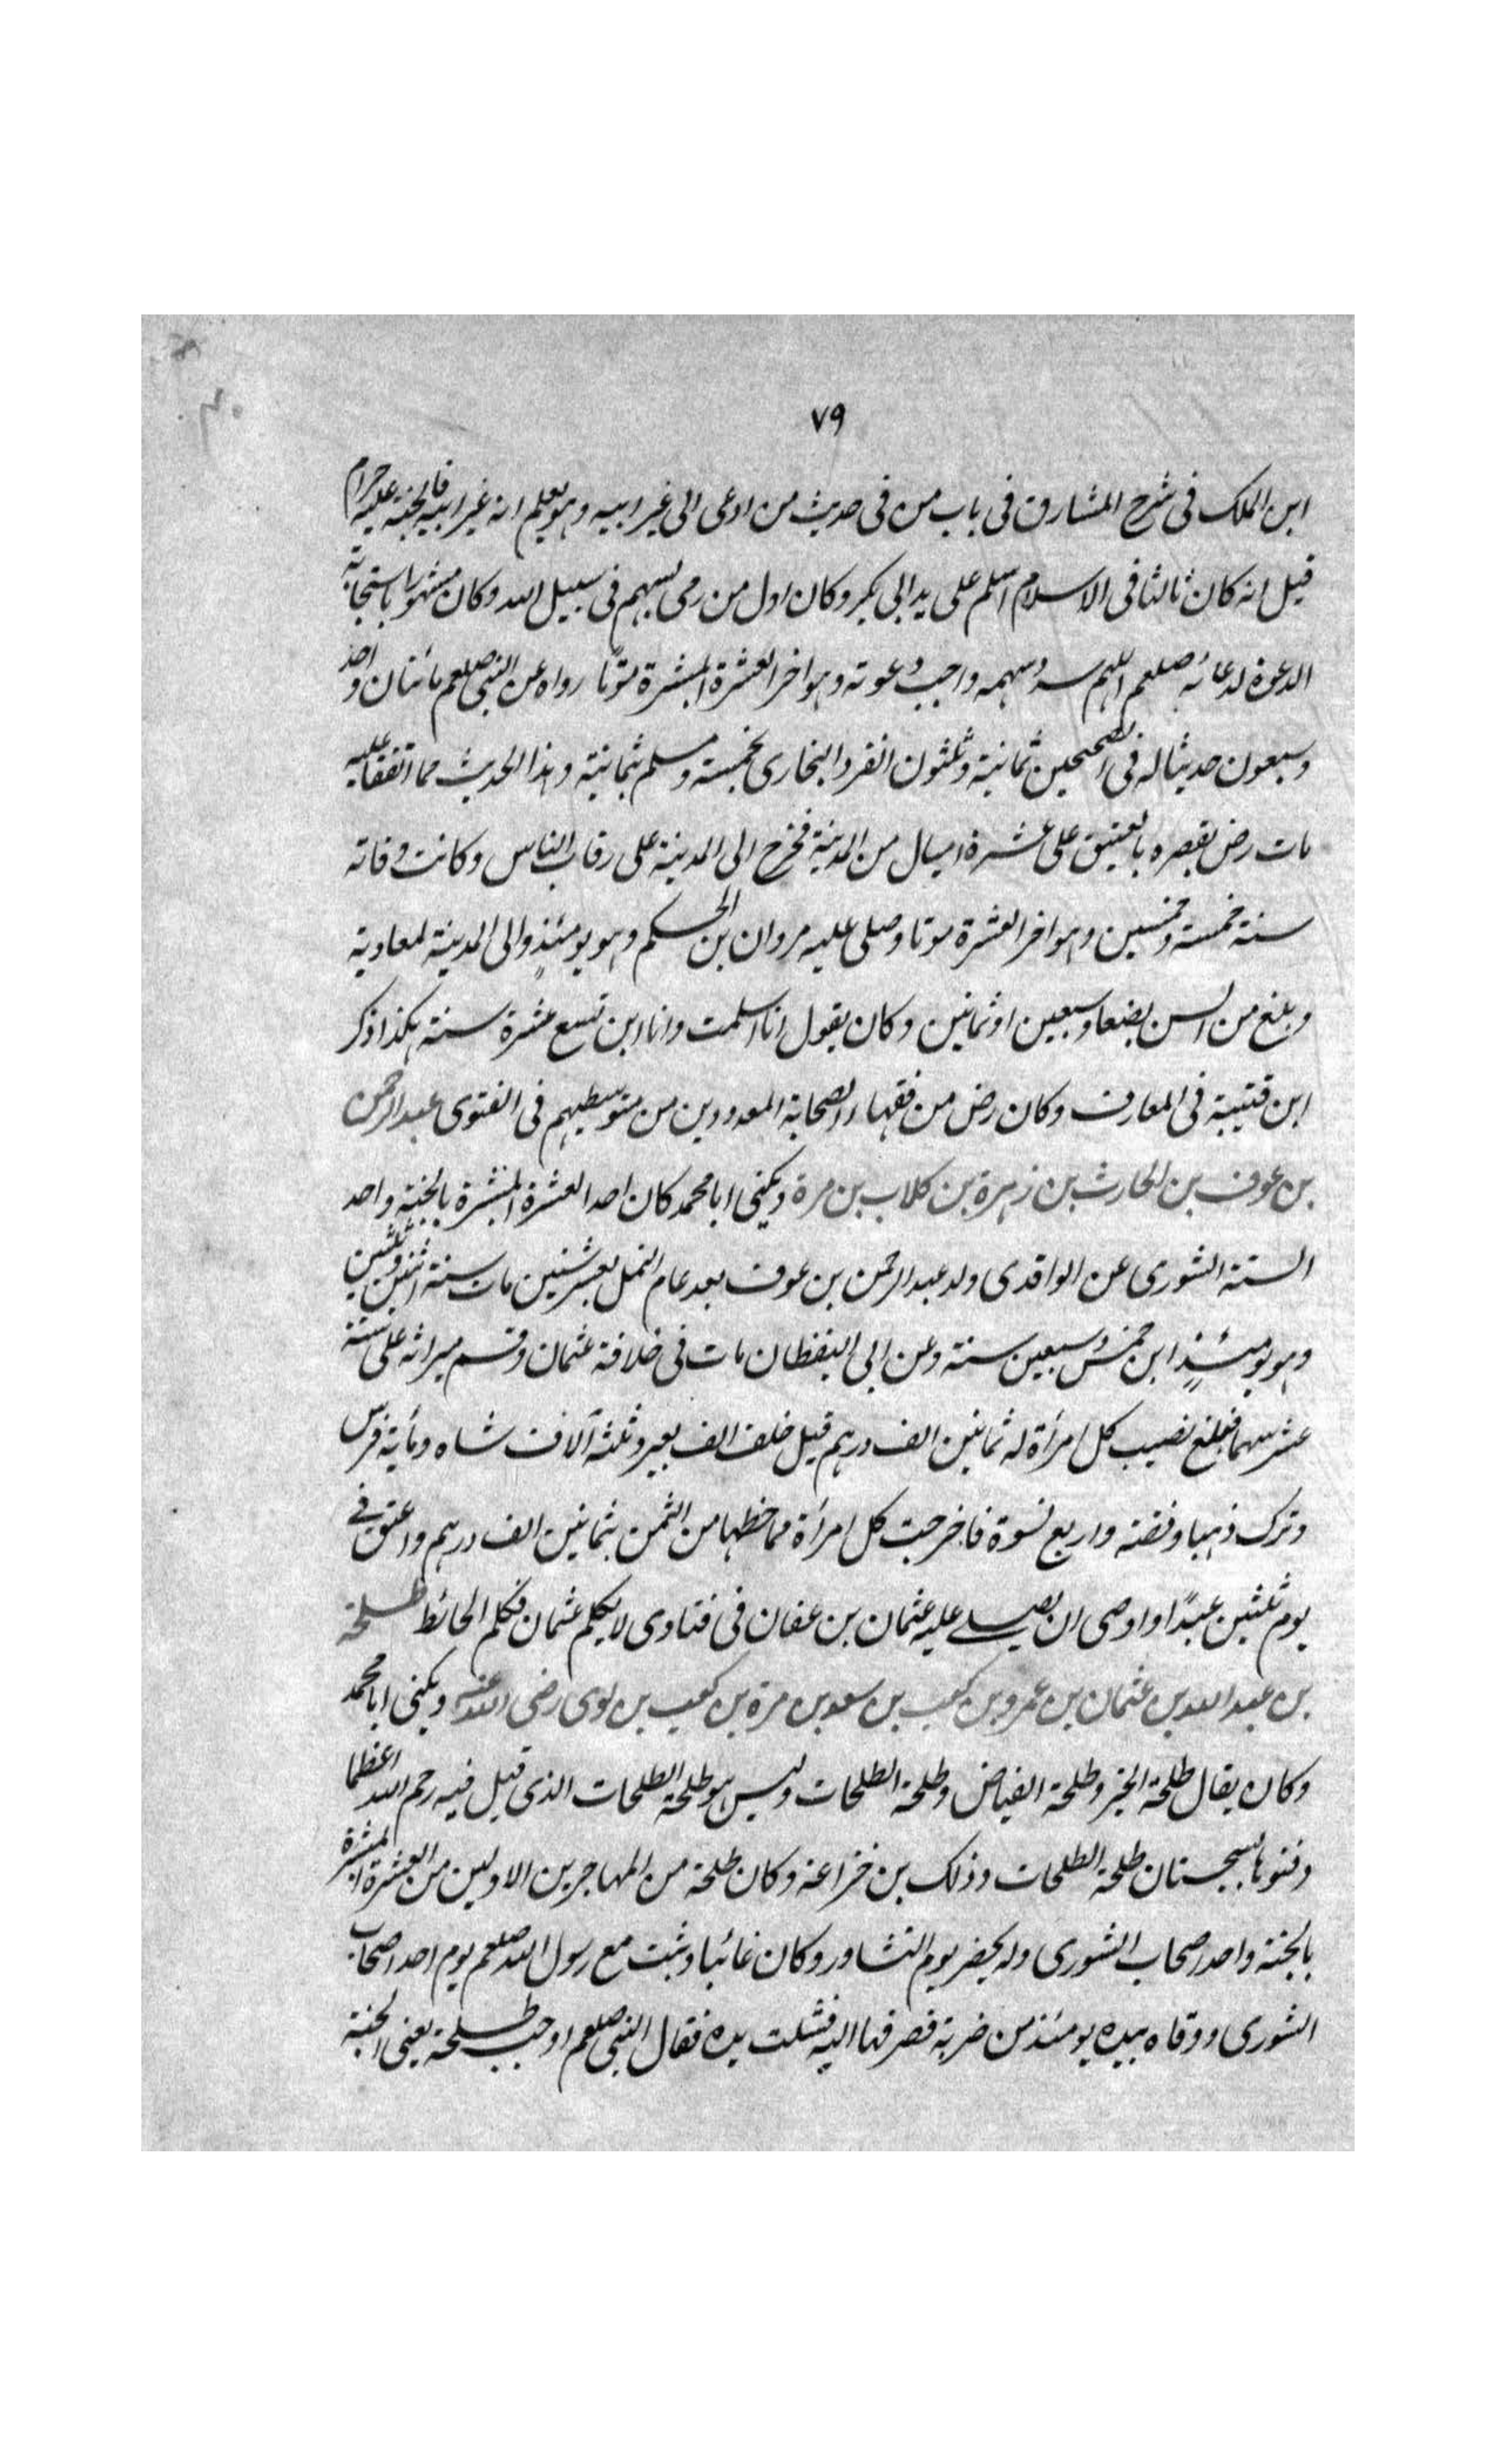 ٧٩
ابن الملك فى شرح المشارق فى باب من فى حديث من ادعى الى غير ابيه وهو يعلم انه غير ابيه فالجنة عليه حرام
قيل انه كان ثالثا فى الاسلام اسلم على يد ابى بكر وكان اول من رمى بسهم فى سبيل الله وكان مشهورا باستجابة
الدعوة لدعائه صلعم اللهم سدد سهمه واجب دعوته وهو اخر العشرة المبشرة موتا رواه عن النبى صلعم مائتان واحد
وسبعون حديثا له فى الصحيحين ثمانية وثلثون انفرد البخارى بخمسة ومسلم بثمانية وهذا الحديث مما اتفقا عليه
مات رض بقصره بالعقيق على عشرة اميال من المدينة فخرج الى المدينة على رقاب الناس وكانت وفاته
سنة خمسة وخمسين وهو اخر العشرة موتا وصلى عليه مروان بن الحكم وهو يومئذٍ والى المدينة لمعاوية
وبلغ من السن بضعا وسبعين او ثمانين وكان يقول انا اسلمت وانا ابن تسع عشرة سنة هكذا ذكر
ابن قتيبة فى المعارف وكان رض من فقهاء الصحابة المعدودين من متوسطيهم فى الفتوى عبد الرحمن
بن عوف بن الحارث بن زهرة بن كلاب بن مرة ويكنى ابا محمد كان احد العشرة المبشرة بالجنة واحد
الستة الشورى عن الواقدى ولد عبد الرحمن بن عوف بعد عام النمل بعشر سنين مات سنة اثنين وثلثين
وهو يومئذٍ ابن خمس وسبعين سنة وعن ابى اليقظان مات فى خلافة عثمان وقسم ميراثه على ستة
عشر سهما فبلغ نصيب كل امرأة له ثمانين الف درهم قيل خلف الف بعير وثلثة آلاف شاه ومائة فرس
وترك ذهبا وفضة واربع نسوة فاخرجت كل امرأة مما حظها من الثمن بثمانين الف درهم واعتق فى
يوم ثلثين عبدًا واوصى ان يصلى عليه عثمان بن عفان فى فتاوى لا يكلم عثمان فكلم الحائط طلحة
بن عبد الله بن عثمان بن عمرو بن كعب بن سعد بن مرة بن كعب بن لوى رضى الله عنه ويكنى ابا محمد
وكان يقال طلحة الخير وطلحة الفياض وطلحة الطلحات وليس هو طلحة الطلحات الذى قيل فيه رحم الله اعظما
دفنوها بسجستان طلحة الطلحات وذلك بن خزاعة وكان طلحة من المهاجرين الاولين من العشرة المبشرة
بالجنة واحد اصحاب الشورى ولم يحضر يوم التشاور وكان غائبا وثبت مع رسول الله صلعم يوم احد اصحاب
الشورى ووقاه بيده يومئذ من ضربة قصر فها اليه فشلت يده فقال النبى صلعم اوجب طلحة يعنى الجنة